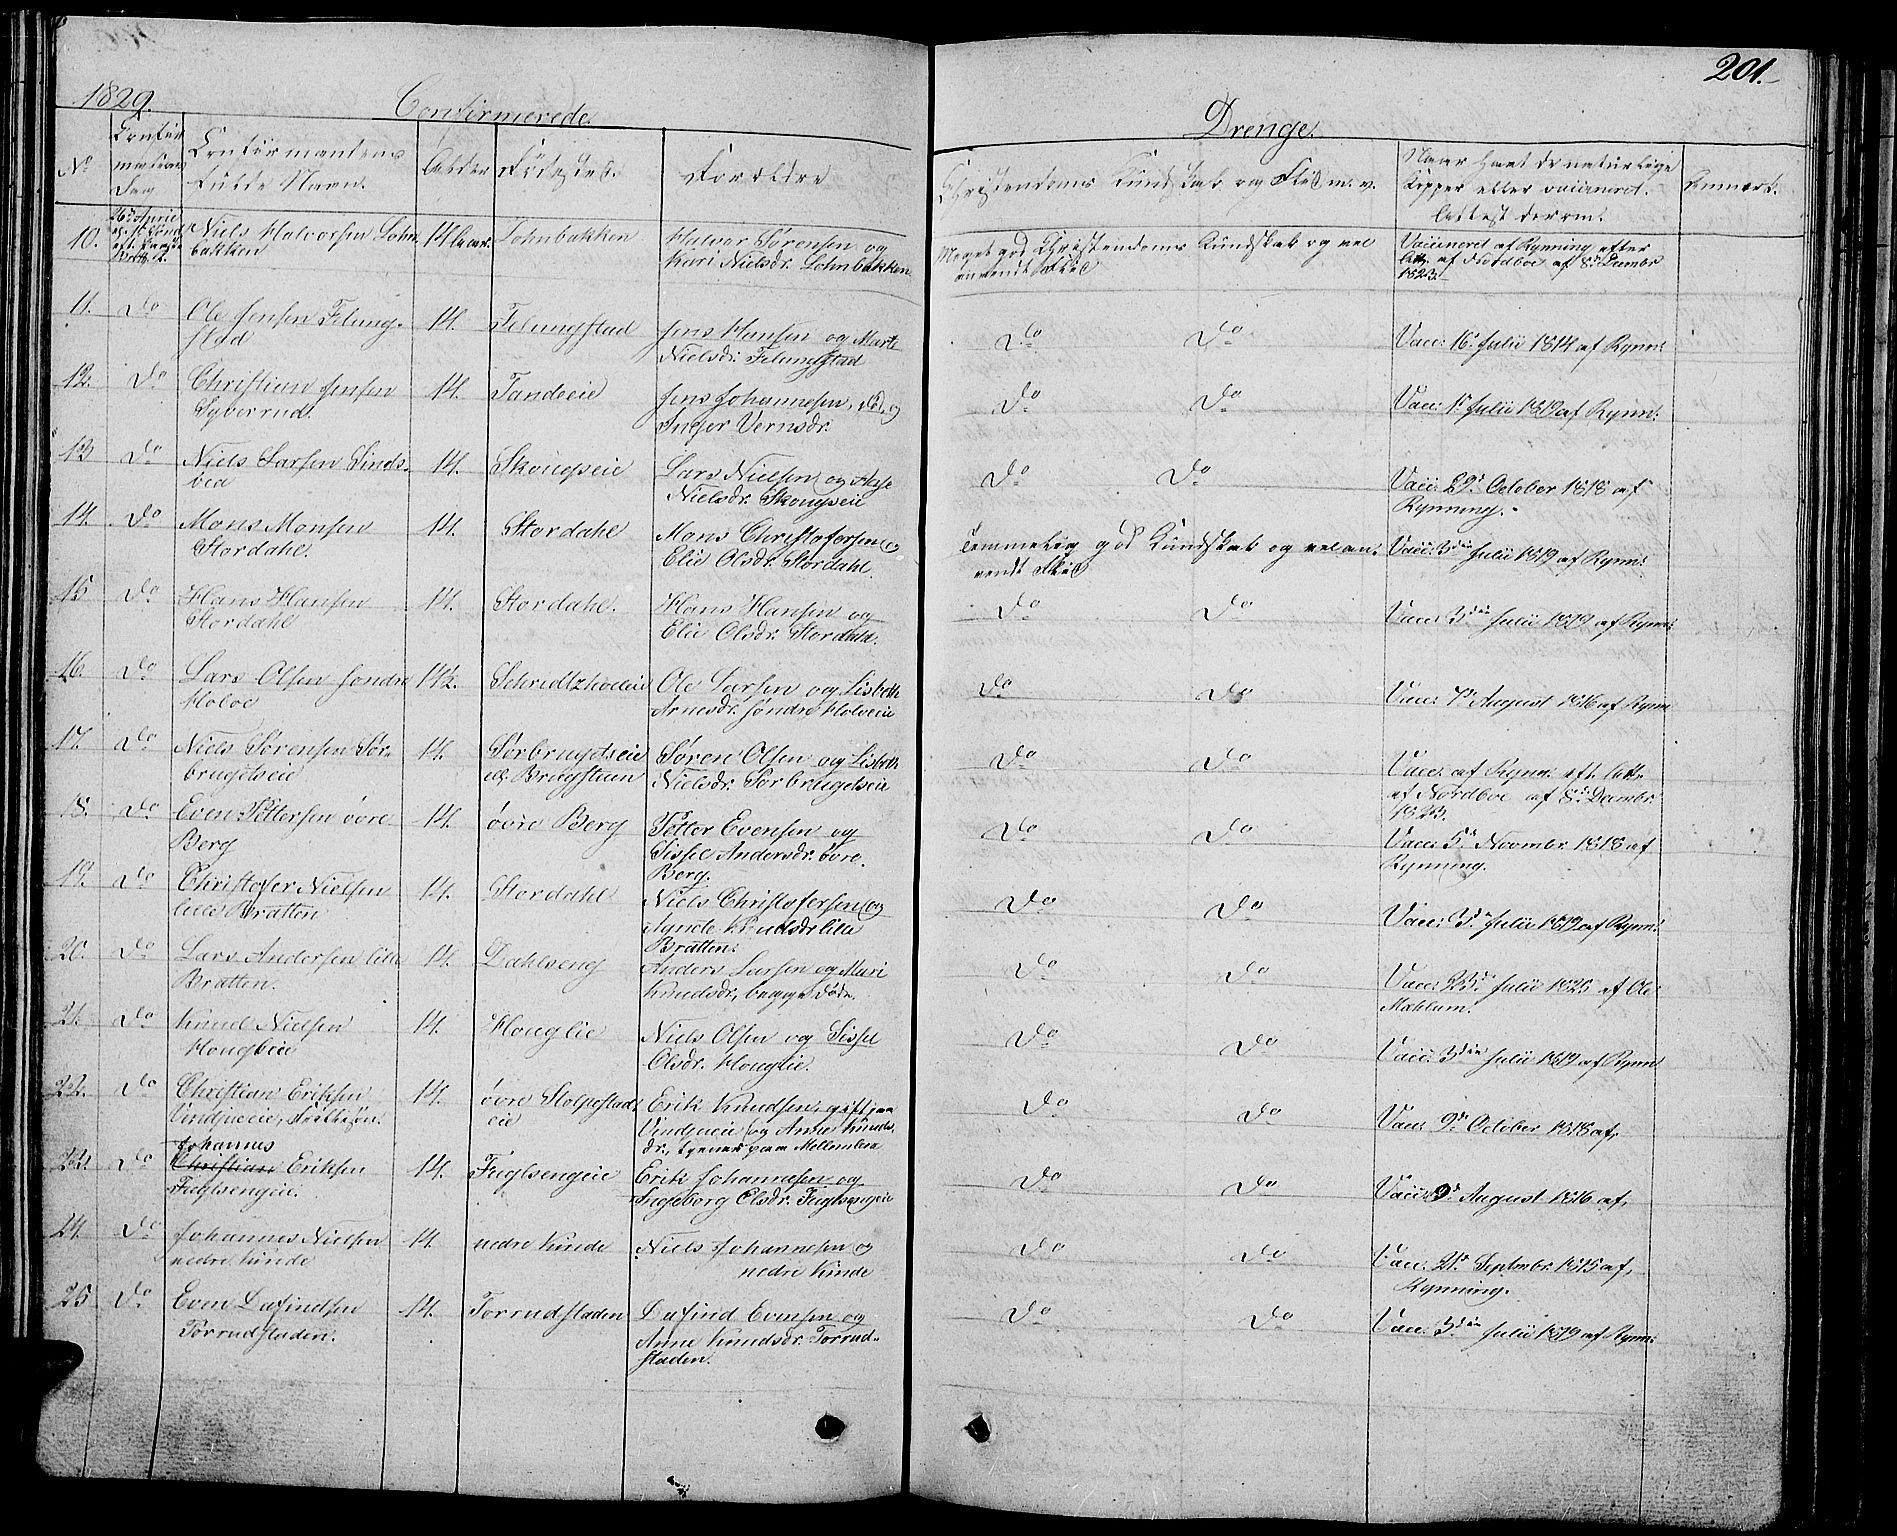 201.
1829.
Confirmerede
Drenge.
No
Confir
mations
Dag
Confirmantens
fulde Navn.
Alder
Fødested.
Forældre
Christendoms Kundskab og Flid m. v.
Naar havt de naturlige
Kopper eller vaccineret.
Attest derom.
Anmærk.
10.
26de April
Niels Halvorsen Lohn
bakken
14 Aar
Lohnbakken
Halvor Sørensen og
Kari Nielsdr. Lohnbakken
Meget god Christendoms Kundskab og vel
anvendt Flid
Vaccineret af Rynning efter
Att. af Nordboe af 8de Decembr
1823.
11.
Do
Ole Jensen Felung-
stad
14.
Felungstad
Jens Hansen og Marte
Nielsdr. Felungstad
Do Do
Vacc: 16de Julii 1814 af Rynn:
12.
Do
Christian Jensen
Syverrud.
14.
Tandeeie
Jens Johannesen, død, og
Inger Vernsdr.
Do Do
Vacc: 1ste Julii 1819 af Rynn:
13
Do
Niels Larsen Linds-
vea
14.
Skougseie
Lars Nielsen og Aase
Nielsdr. Skougseie
Do Do
Vacc. 29de October 1818 af
Rynning.
14.
Do
Mons Monsen
Stordahl.
14.
Stordahl
Mons Christofersen og
Elie Olsdr. Stordahl.
Temmelig god Kundskab og vel an-
vendt Flid
Vacc: 3die Julii 1819 af Rynn:
15
Do
Hans Hansen
Stordahl
14.
Stordahl.
Hans Hansen og
Elie Olsdr. Stordahl.
Do Do
Vacc: 3die Julii 1819 af Rynn:
16.
Do
Lars Olsen søndre
Holoe
14½.
Ole Larsen og Lisbeth
Arnesdr. søndre Holoeie
Do Do
Vacc: 7de August 1816 af Rynn
17.
Do
Niels Sørensen Sør-
brugetseie
14.
Sørbrugetseie
Søren Olsen og Lisbeth
Nielsdr. Sørbrugetseie
Do Do
Vacc: af Rynn: eft. Att.
af Nordboe af 8de Decembr
1823.
18.
Do
Even Pettersen øvre
Berg
14.
øvre Berg
Petter Evensen og
Sissel Andersdr. øvre
Berg.
Do Do
Vacc: 5te Novembr 1818 af
Rynning.
19.
Do
Christofer Nielsen
lille Bratten
14.
Stordahl
Niels Christofersen og
Agnete Knudsdr lille
Bratten.
Do Do
Vacc: 3die Julii 1819 af Rynn:
20.
Do
Lars Andersen lille
Bratten.
14.
Dahlseng
Anders Larsen og Mari
Knudsdr, begge døde.
Do Do
Vacc: 23de Julii 1825 af Ole
Mæhlum.
21.
Do
Knud Nielsen
Houglieie
14.
Houglie
Niels Olsen og Sissel
Olsdr. Houglie.
Do Do
Vacc: 3die Julii 1819 af Rynn
22.
Do
Christian Eriksen
Vindjueeie,
14.
øvre Stolpestad-
eie
Erik Knudsen, gift paa
Vindjueie og Anne Knuds-
dr., tjener paa Mellemlien
Do Do
Vacc. 9de October 1818 af,
23.
Do
Johannes
Christian Eriksen
Fuglsengeie.
14.
Fuglsengeie
Erik Johannesen og
Ingeborg Olsdr. Fuglsengeie
Do Do
Vacc: 9de August 1816 af,
24.
Do
Johannes Nielsen
nedre Kinde
14.
nedre Kinde
Niels Johannesen og
nedre Kinde
Do Do
Vacc. 21de Septembr 1815 af,
Rynning.
25
Do
Even Dafindsen
Torrudstaden.
14.
Torrudstaden
Dafind Evensen og
Anne Knudsdr. Torrud-
staden.
Do Do
Vacc. 3die Julii 1819 af Rynn: